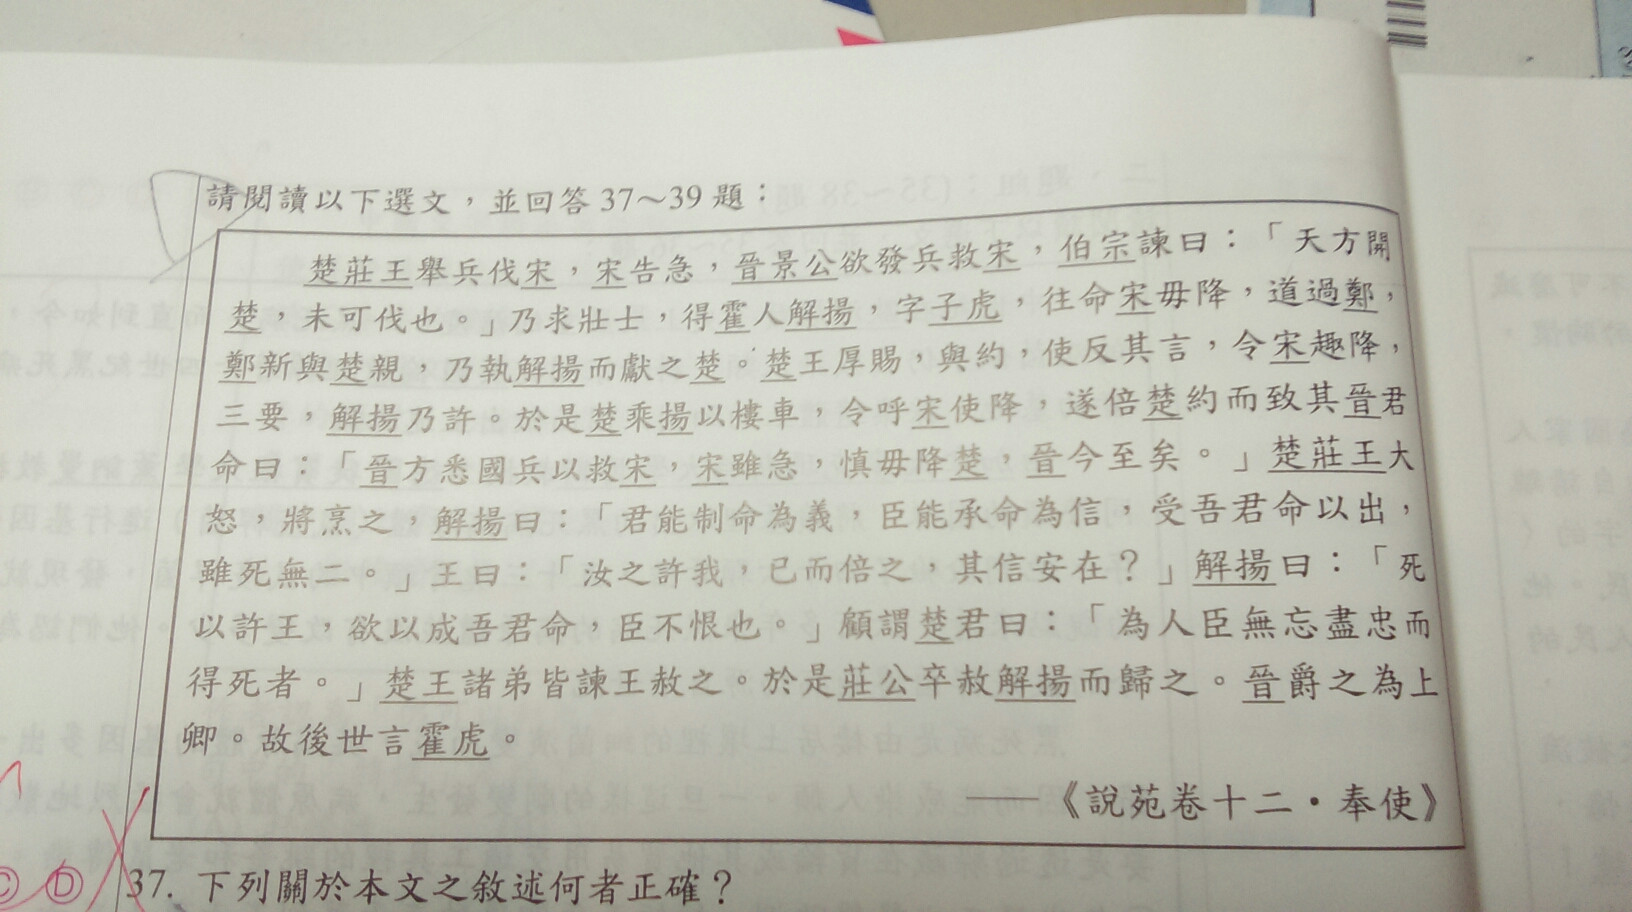 請閱讀以下選文，並回答37～39題：
楚莊王舉兵伐宋，宋告急，晉景公欲發兵救宋，伯宗諫曰：「天方開
楚，未可伐也。」乃求壯士，得霍人解揚，字子虎，往命宋毋降，道過鄭，
鄭新與楚親，乃執解揚而獻之楚。楚王厚賜，與約，使反其言，令宋趣降，
三要，解揚乃許。於是楚乘揚以樓車，令呼宋使降，遂倍楚約而致其晉君
命曰：「晉方悉國兵以救宋，宋雖急，慎毋降楚，晉今至矣。」楚莊王大
怒，將烹之，解揚曰：「君能制命為義，臣能承命為信，受吾君命以出，
雖死無二。」王曰：「汝之許我，已而倍之，其信安在？」解揚曰：「死
以許王，欲以成吾君命，臣不恨也。」顧謂楚君曰：「為人臣無忘盡忠而
得死者。」楚王諸弟皆諫王赦之。於是莊公卒赦解揚而歸之。晉爵之為上
卿。故後世言霍虎。
——《說苑卷十二‧奉使》
37. 下列關於本文之敘述何者正確？